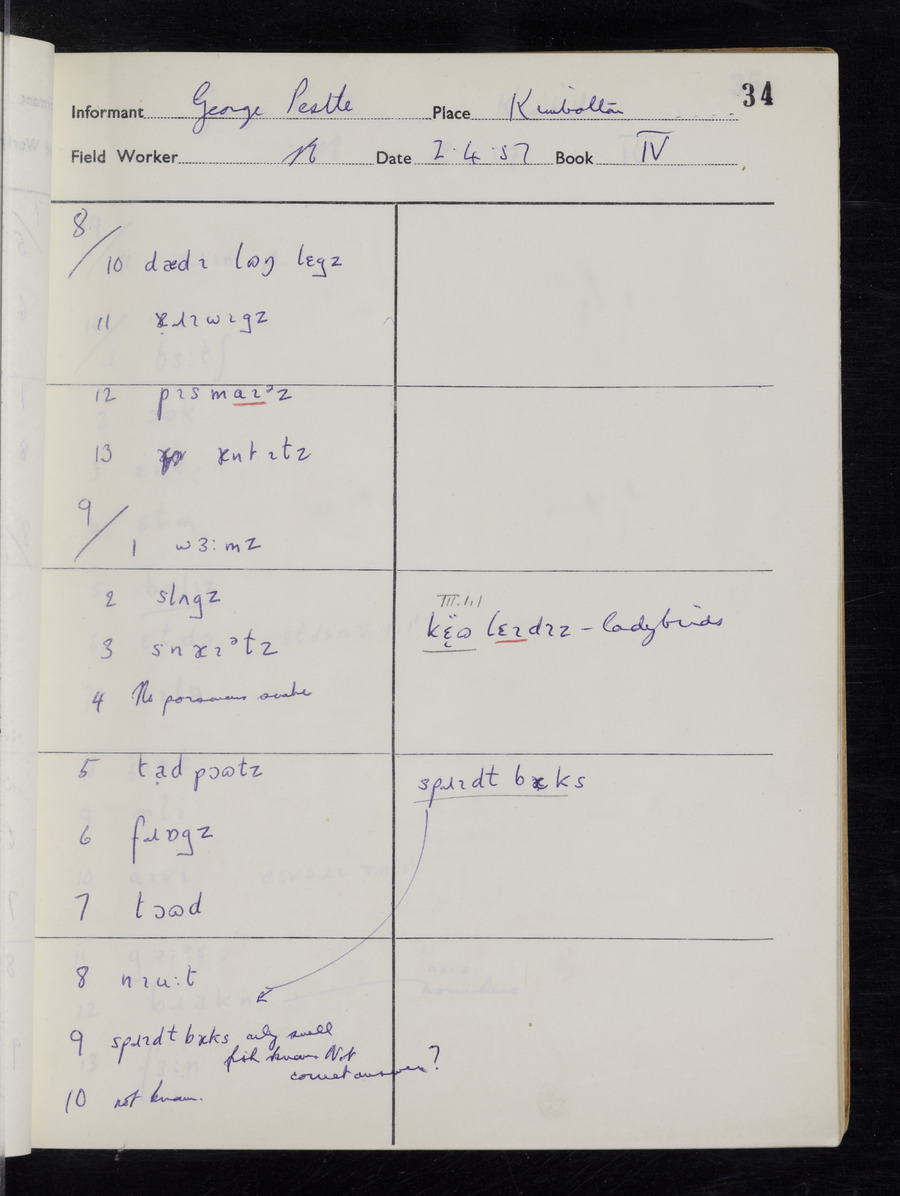 34
Informant George Pestle Place Kimbolton
Field Worker Date 2.4.57 Book IV
8/
10 dædɪ lɒŋ lɛgz
11 ɪɹwɪgz
12 pɪsmaɪᵊz
13
9/
1 wɜ:mz
2 slʌgz
3 snæɪᵊtz
III.1.1
kɛ̈ɷ lɛɪdɪz – ladybirds
4 No poisonous snake
5 tad pɔɷtz
spɹɪdt bæks
6 fɹɒgz
7 tɔɷd
8 nɪu:t
9 spɹɪdt bæks only small
fish known Not
correct answer?
10 not known.